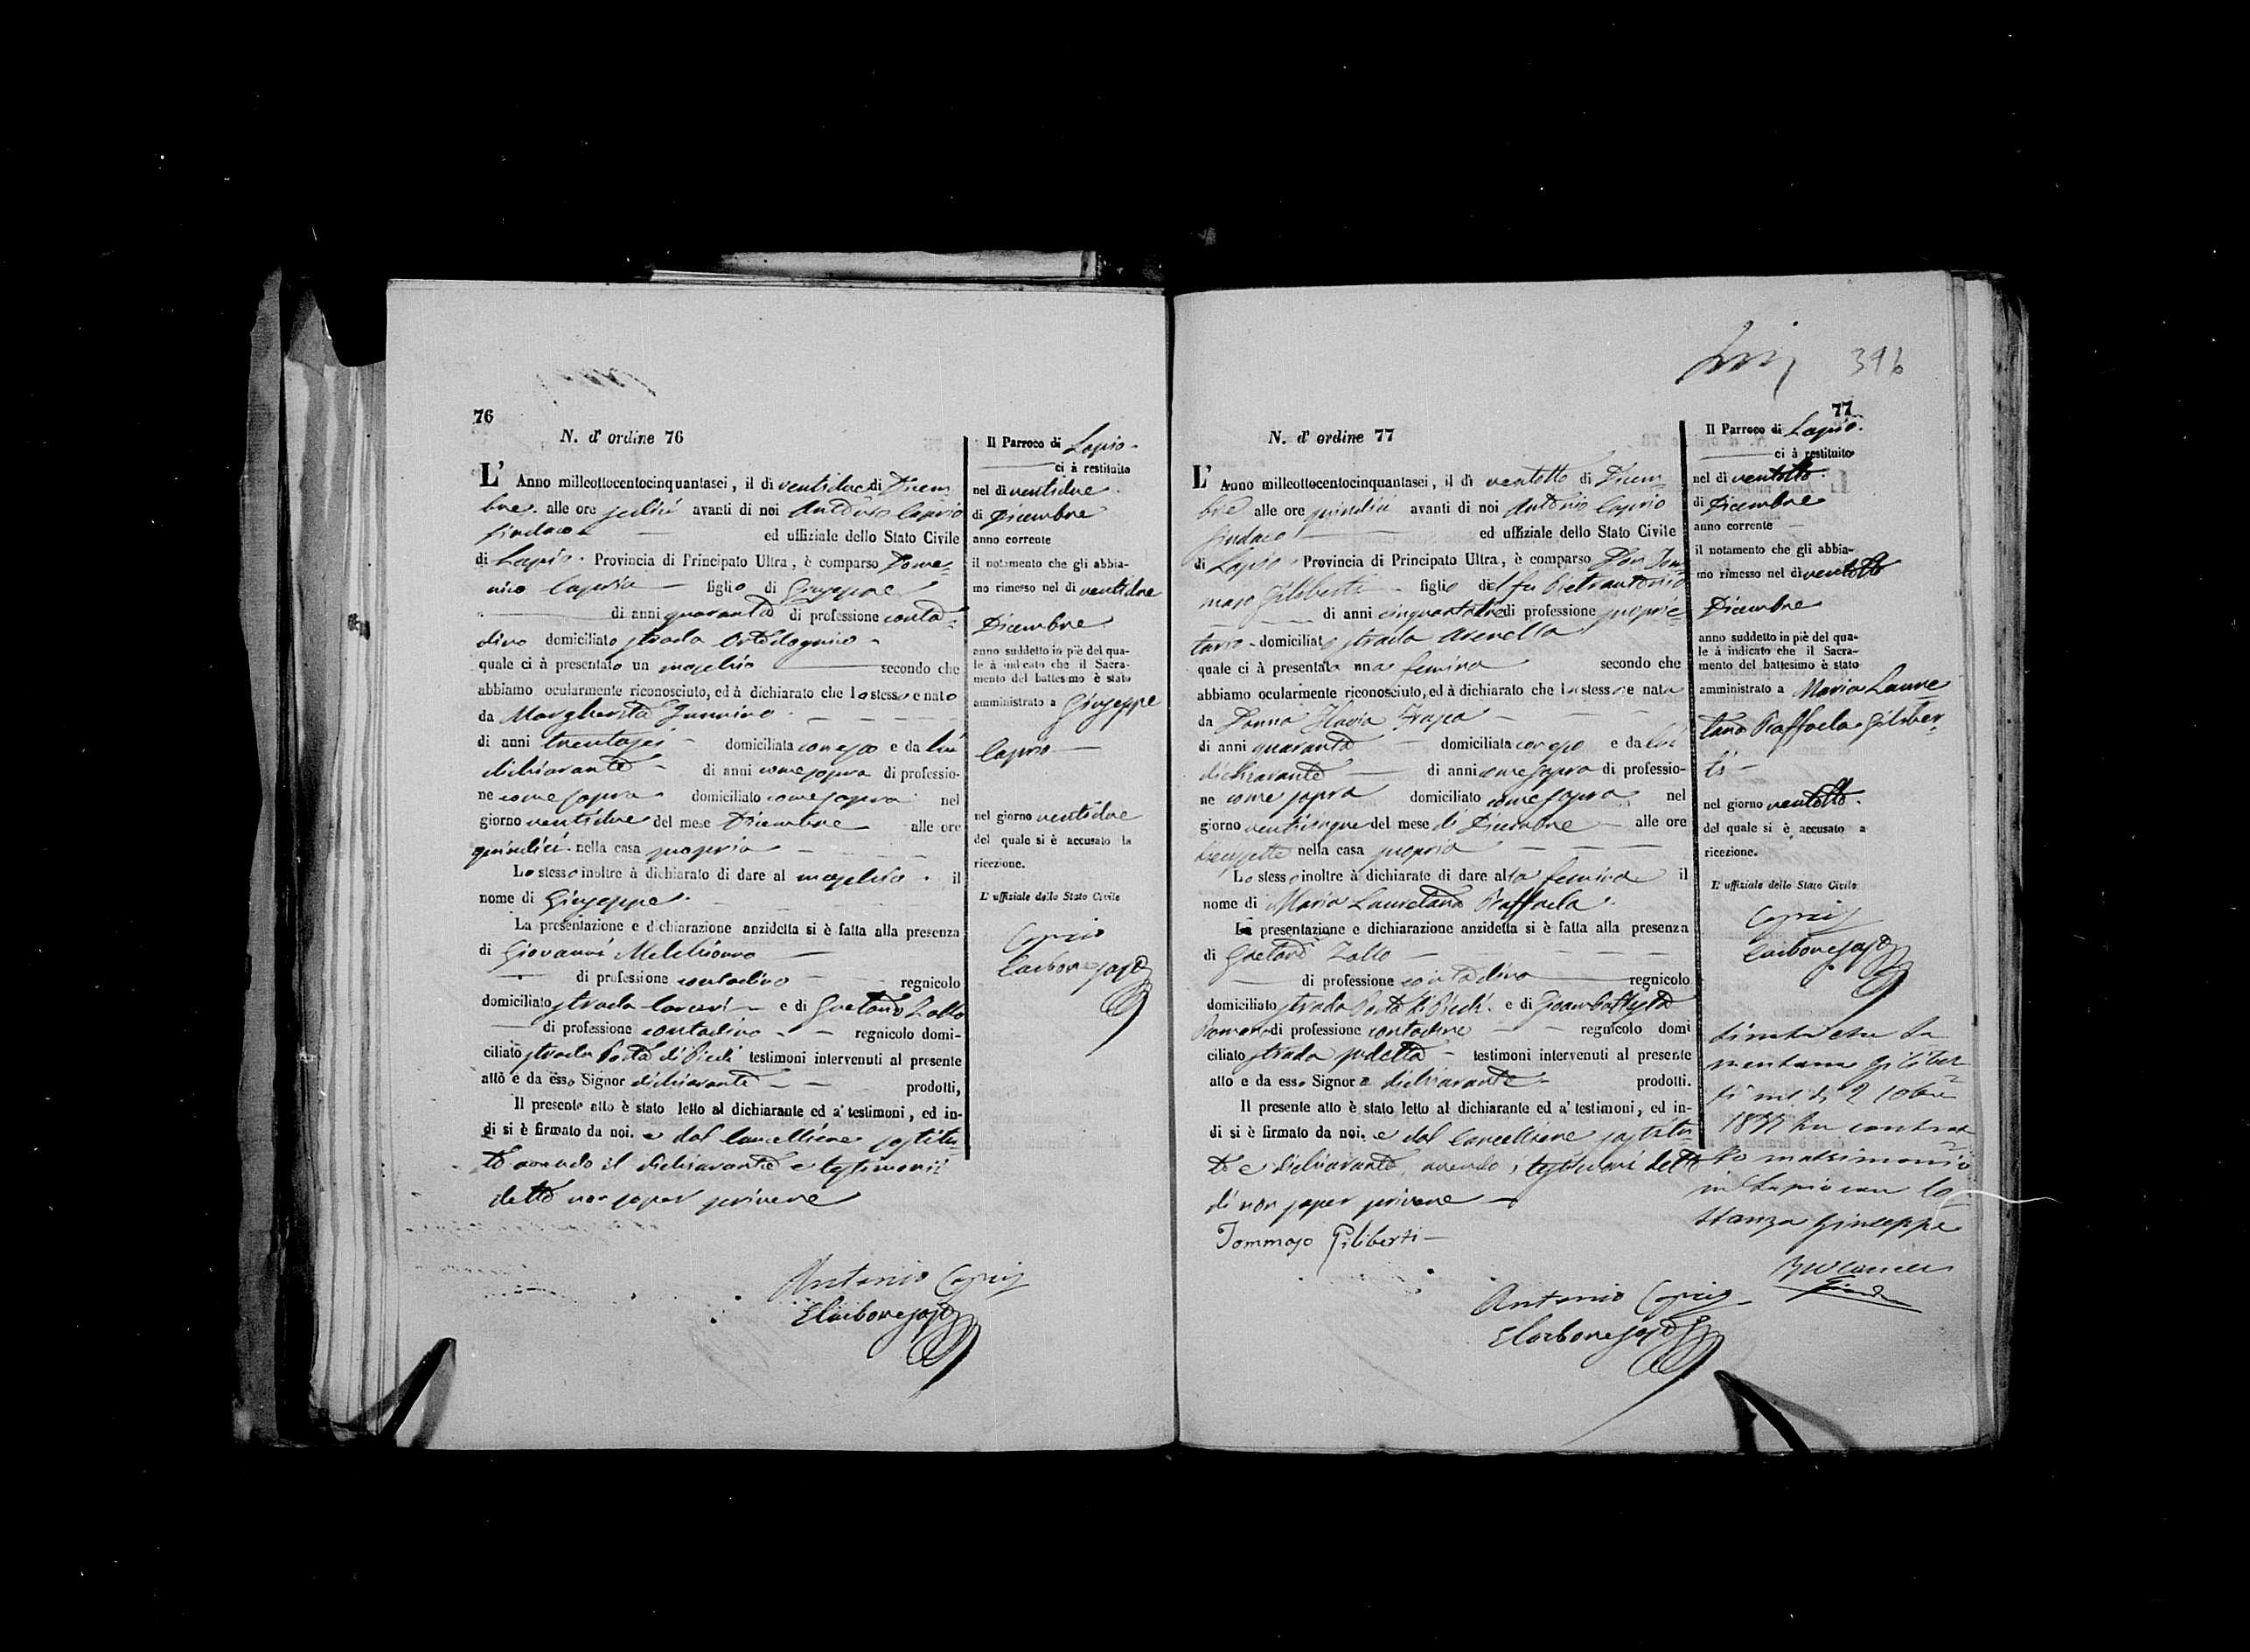 76
N. d' ordine 76
L' Anno millcottocentocinquantasei, il dì ventidue di Dicem-
bre alle ore sedici avanti di noi Antonio Caprio
Sindaco ed uffiziale dello Stato Civile
di Lapio Provincia di Principato Ultra, è comparso Dome-
nico Caprio figlio di Giuseppe
di anni quaranta di professione conta-
dino domiciliato strada
quale ci à presentato un maschio secondo che
abbiamo ocularmente riconosciuto, ed à dichiarato che lo stesso e nato
da Margherita
di anni trentasei domiciliata con esso e da lui
dichiarante di anni come sopra di professio-
ne come sopra domiciliato come sopra nel
giorno ventidue del mese Dicembre alle ore
quindici nella casa propria
Lo stesso inoltre à dichiarato di dare al maschio il
nome di Giuseppe
La presentazione e dichiarazione anzidetta si è fatta alla presenza
di Giovanni Melchionno
di professione contadino regnicolo
domiciliato strada e di Gaetano Zollo
di professione contadino regnicolo domi-
ciliato strada Porta di Piedi testimoni intervenuti al presente
atto e da esso Signor dichiarante prodotti,
Il presente atto è stato letto al dichiarante ed a' testimoni, ed in-
di si è firmato da noi. e dal Cancelliere sostitu-
to avendo il dichiarante e testimonii
detto non saper scrivere
Antonio Caprio
E Carbone sost
Il Parroco di Lapio
ci à restituito
nel dì ventidue
di Dicembre
anno corrente
il notamento che gli abbia-
mo rimesso nel dì ventidue
Dicembre
anno suddetto in piè del qua-
le à indicato che il Sacra-
mento del battesimo è stato
amministrato a Giuseppe
Caprio
nel giorno ventidue
del quale si è accusato la
ricezione.
L' uffiziale dello Stato Civile
Caprio
Carbone sost
396
77
N. d' ordine 77
L' Anno millcottocentocinquantasei, il dì ventotto di Dicem-
bre alle ore quindici avanti di noi Antonio Caprio
Sindaco ed uffiziale dello Stato Civile
di Lapio Provincia di Principato Ultra, è comparso Don Tom-
maso Giliberti figlio del fu Pietrantonio
di anni cinquantatre di professione proprie-
tario domiciliato strada Arenella
quale ci à presentata una femina secondo che
abbiamo ocularmente riconosciuto, ed à dichiarato che la stessa e nata
da Donna
di anni quaranta domiciliata con esso e da lui
dichiarante di anni come sopra di professio-
ne come sopra domiciliato come sopra nel
giorno venticinque del mese di Dicembre alle ore
diecisette nella casa propria
Lo stesso inoltre à dichiarato di dare alla femina il
nome di Maria Lauretana Raffaela
La presentazione e dichiarazione anzidetta si è fatta alla presenza
di Gaetano Zollo
di professione contadino regnicolo
domiciliato strada Porta di Piedi e di Gioambattista
Romano di professione contadino regnicolo domi
ciliato strada sudetta testimoni intervenuti al presente
atto e da esso Signore dichiarante prodotti.
Il presente atto è stato letto al dichiarante ed a' testimoni, ed in-
di si è firmato da noi. e dal Cancelliere sostitu-
to e dichiarante, avendo i testimoni detto
di non saper scrivere
Tommaso Giliberti
Antonio Caprio
E Carbone sost
Il Parroco di Lapio.
ci à restituito
nel dì ventotto
di Dicembre
anno corrente
il notamento che gli abbia-
mo rimesso nel dì ventotto
Dicembre
anno suddetto in piè del qua-
le à indicato che il Sacra-
mento del battesimo è stato
amministrato a Maria Laure
tana Raffaela Giliber-
ti
nel giorno ventotto.
del quale si è accusato a
ricezione.
L' uffiziale dello Stato Civile
Caprio
Carbone sost
Giliber-
ti nel dì 2
ha contrat-
to matrimonio
in Lapio con Co-
stanza Giuseppe